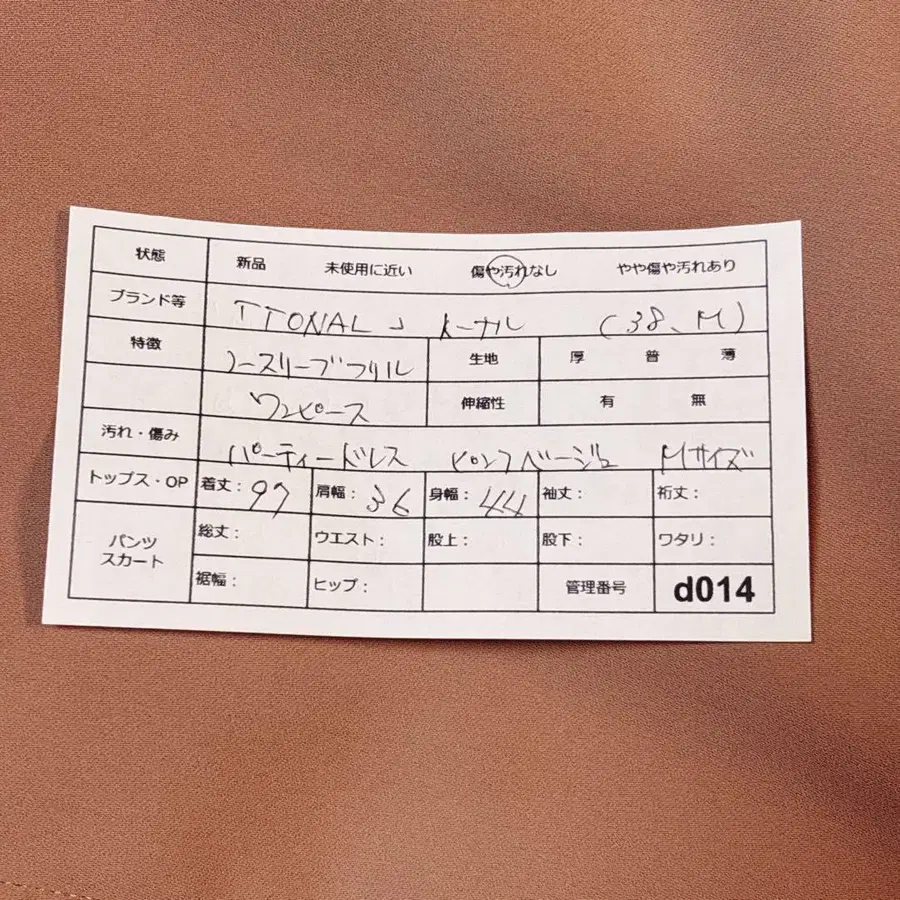 状態 新品 未使用に近い 傷や汚れなし やや傷や汚れあり
ブランド等 「TONAL」 トーナル (38、M)
特徴 ノースリーブフリル 生地 厚 普 薄
ワンピース 伸縮性 有 無
汚れ・傷み パーティードレス ピンクベージュ Mサイズ
トップス・OP 着丈: 97 肩幅: 36 身幅: 44 袖丈: 裄丈:
パンツ スカート 総丈: ウエスト: 股上: 股下: ワタリ:
裾幅: ヒップ: 管理番号 d014